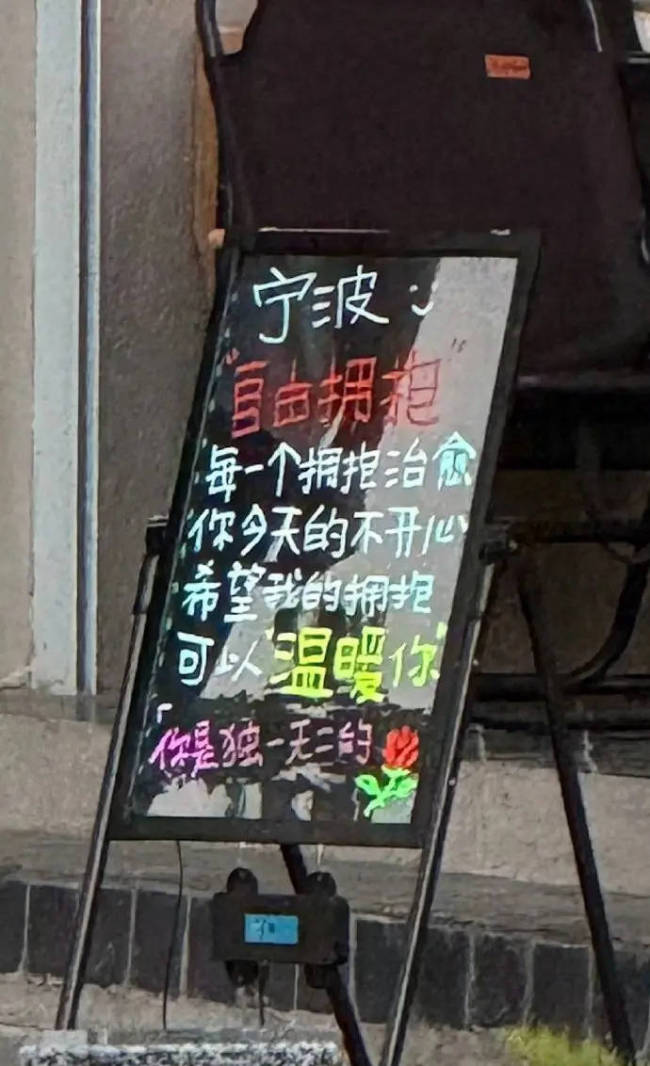 宁波
"自由拥抱"
每一个拥抱治愈
你今天的不开心
希望我的拥抱
可以"温暖你"
「你是独一无二的